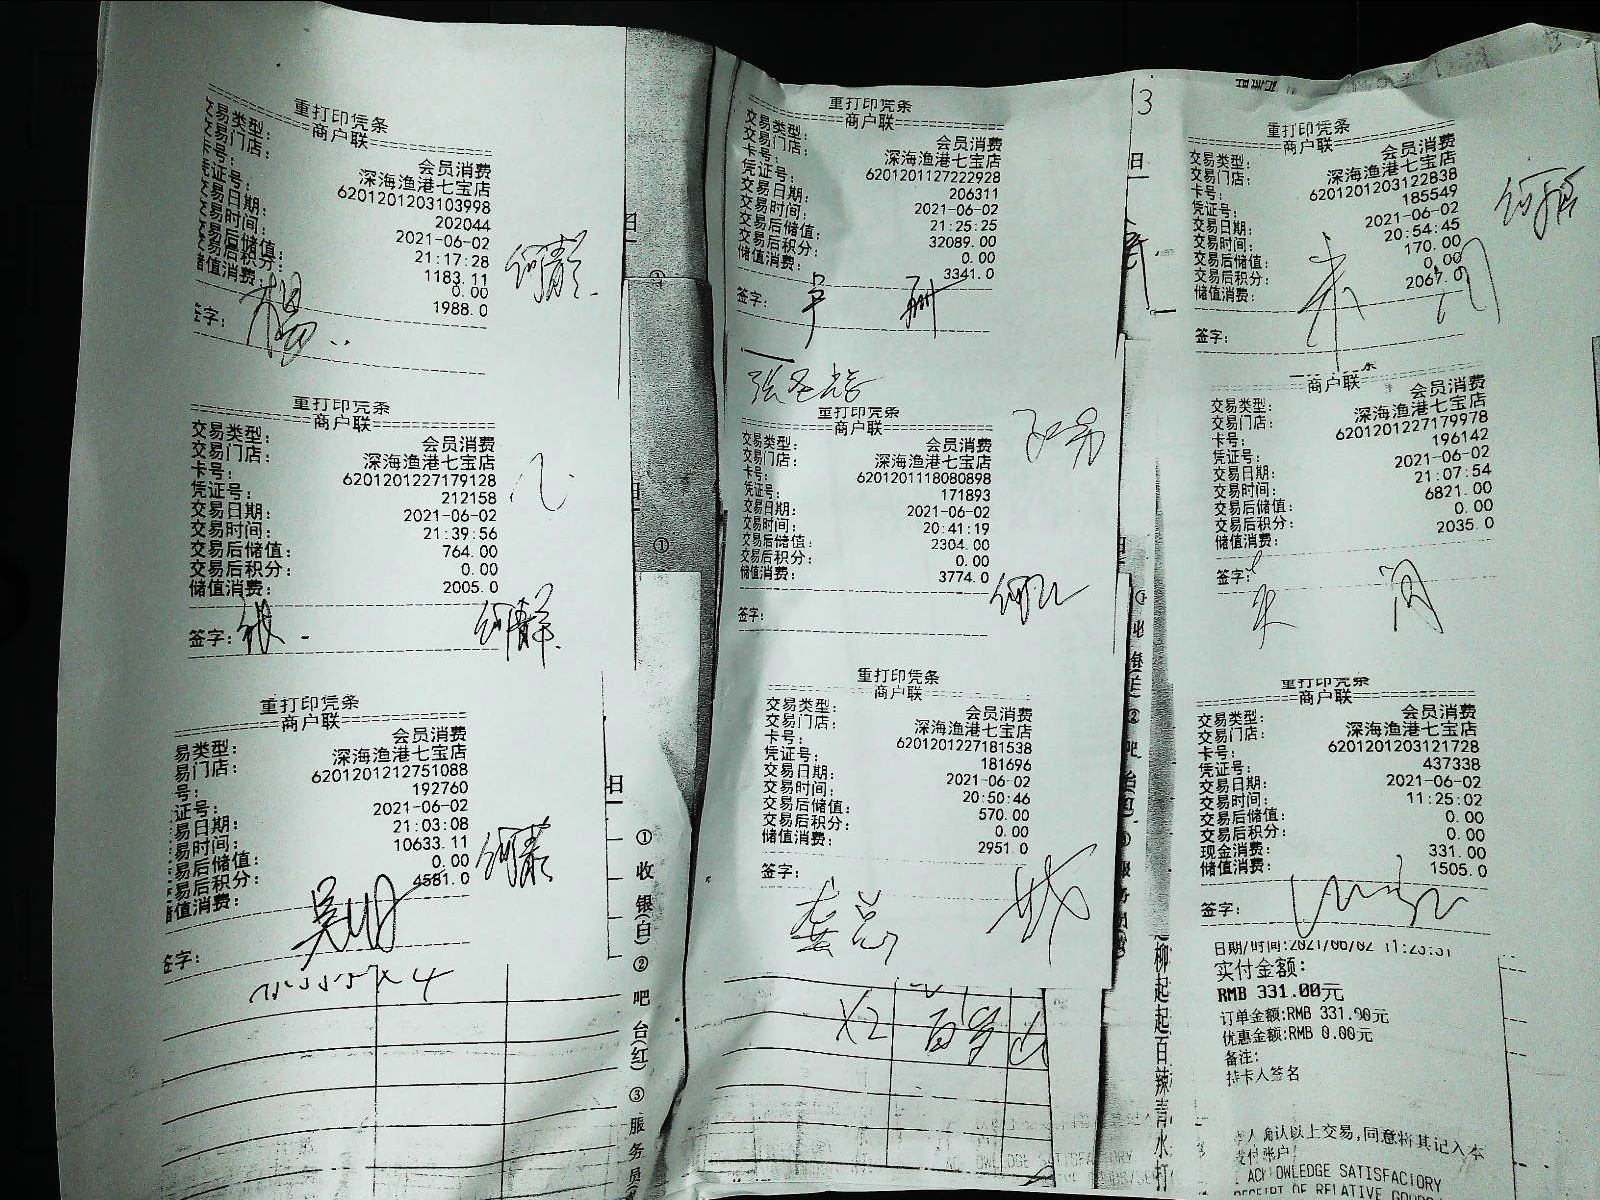 重打印凭条
商户联
交易类型： 会员消费
交易门店： 深海渔港七宝店
卡号： 6201201203103998
凭证号： 202044
交易日期： 2021-06-02
交易时间： 21:17:28
交易后储值： 1183.11
交易后积分： 0.00
储值消费： 1988.0
签字：
重打印凭条
商户联
交易类型： 会员消费
交易门店： 深海渔港七宝店
卡号： 6201201227179128
凭证号： 212158
交易日期： 2021-06-02
交易时间： 21:39:56
交易后储值： 764.00
交易后积分： 0.00
储值消费： 2005.0
签字：
重打印凭条
商户联
易类型： 会员消费
易门店： 深海渔港七宝店
号： 6201201212751088
证号： 192760
易日期： 2021-06-02
易时间： 21:03:08
易后储值： 10633.11
易后积分： 0.00
值消费： 4581.0
签字：
①收银(白)②吧台(红)③服务员
重打印凭条
商户联
交易类型： 会员消费
交易门店： 深海渔港七宝店
卡号： 6201201127222928
凭证号： 206311
交易日期： 2021-06-02
交易时间： 21:25:25
交易后储值： 32089.00
交易后积分： 0.00
储值消费： 3341.0
签字：
重打印凭条
商户联
交易类型： 会员消费
交易门店： 深海渔港七宝店
卡号： 6201201118080898
凭证号： 171893
交易日期： 2021-06-02
交易时间： 20:41:19
交易后储值： 2304.00
交易后积分： 0.00
储值消费： 3774.0
签字：
重打印凭条
商户联
交易类型： 会员消费
交易门店： 深海渔港七宝店
卡号： 6201201227181538
凭证号： 181696
交易日期： 2021-06-02
交易时间： 20:50:46
交易后储值： 570.00
交易后积分： 0.00
储值消费： 2951.0
签字：
X2 百岁山
3
重打印凭条
商户联
交易类型： 会员消费
交易门店： 深海渔港七宝店
卡号： 6201201203122838
凭证号： 185549
交易日期： 2021-06-02
交易时间： 20:54:45
交易后储值： 170.00
交易后积分： 0.00
储值消费： 2067.0
签字：
商户联
交易类型： 会员消费
交易门店： 深海渔港七宝店
卡号： 6201201227179978
凭证号： 196142
交易日期： 2021-06-02
交易时间： 21:07:54
交易后储值： 6821.00
交易后积分： 0.00
储值消费： 2035.0
签字：
重打印凭条
商户联
交易类型： 会员消费
交易门店： 深海渔港七宝店
卡号： 6201201203121728
凭证号： 437338
交易日期： 2021-06-02
交易时间： 11:25:02
交易后储值： 0.00
交易后积分： 0.00
现金消费： 331.00
储值消费： 1505.0
签字：
日期/时间:2021/06/02
实付金额：
RMB 331.00元
订单金额:RMB 331.00元
优惠金额:RMB 0.00元
备注：
持卡人签名
人确认以上交易,同意将其记入本
支付账户
ACKNOWLEDGE SATISFACTORY
RECEIPT OF RELATIVE